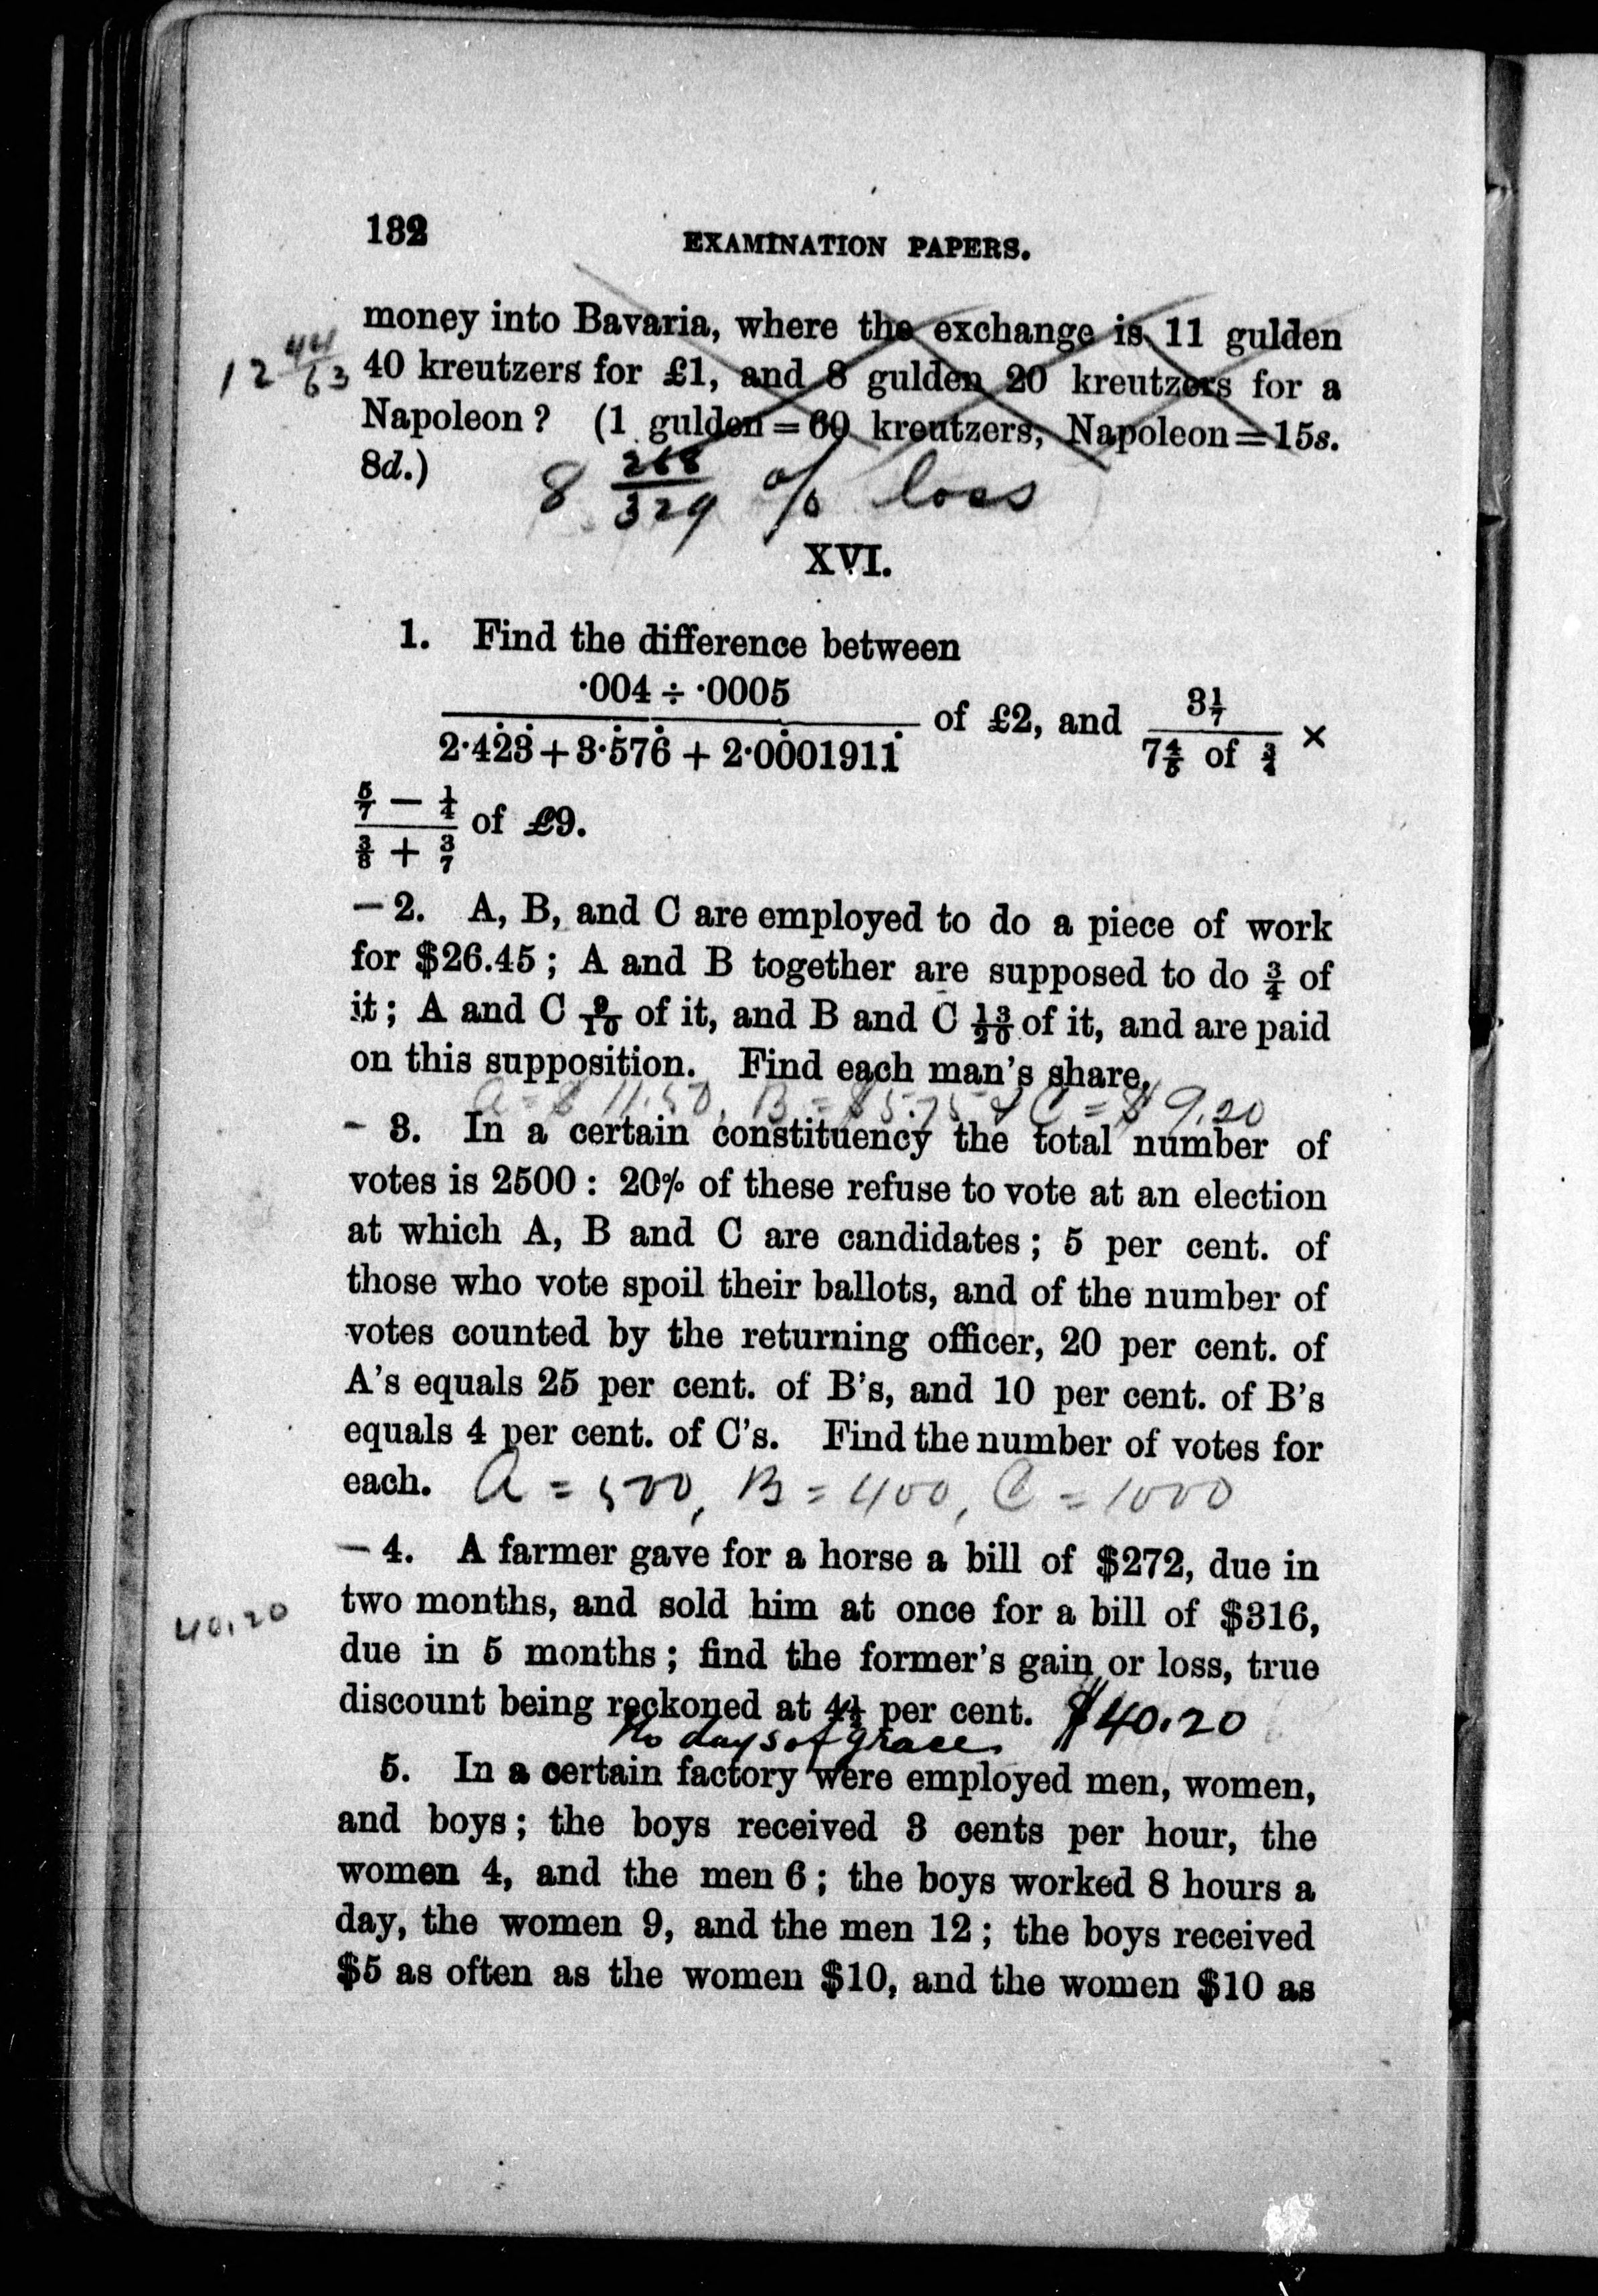 132 EXAMINATION PAPERS.
money into Bavaria, where the exchange is 11 gulden
12 44/63 40 kreutzers for £1, and 8 gulden 20 kreutzers for a
Napoleon? (1 gulden=60 kreutzers, Napoleon=15s.
8d.)
8 268/329 % loss
XVI.
1. Find the difference between
·004 ÷ ·0005
2·4̇23̇ + 3·5̇76̇ + 2·00̇01911̇ of £2, and 3 1/7 / 7 4/5 of 3/4 ×
5/7 − 1/4
3/8 + 3/7 of £9.
— 2. A, B, and C are employed to do a piece of work
for $26.45; A and B together are supposed to do 3/4 of
it; A and C 9/10 of it, and B and C 13/20 of it, and are paid
on this supposition. Find each man's share.
A = $11.50, B = $5.75 & C = $9.20
- 3. In a certain constituency the total number of
votes is 2500: 20% of these refuse to vote at an election
at which A, B and C are candidates; 5 per cent. of
those who vote spoil their ballots, and of the number of
votes counted by the returning officer, 20 per cent. of
A's equals 25 per cent. of B's, and 10 per cent. of B's
equals 4 per cent. of C's. Find the number of votes for
each. A = 500, B = 400, C = 1000
— 4. A farmer gave for a horse a bill of $272, due in
40.20 two months, and sold him at once for a bill of $316,
due in 5 months; find the former's gain or loss, true
discount being reckoned at 4½ per cent. $40.20
No days of grace.
5. In a certain factory were employed men, women,
and boys; the boys received 3 cents per hour, the
women 4, and the men 6; the boys worked 8 hours a
day, the women 9, and the men 12; the boys received
$5 as often as the women $10, and the women $10 as